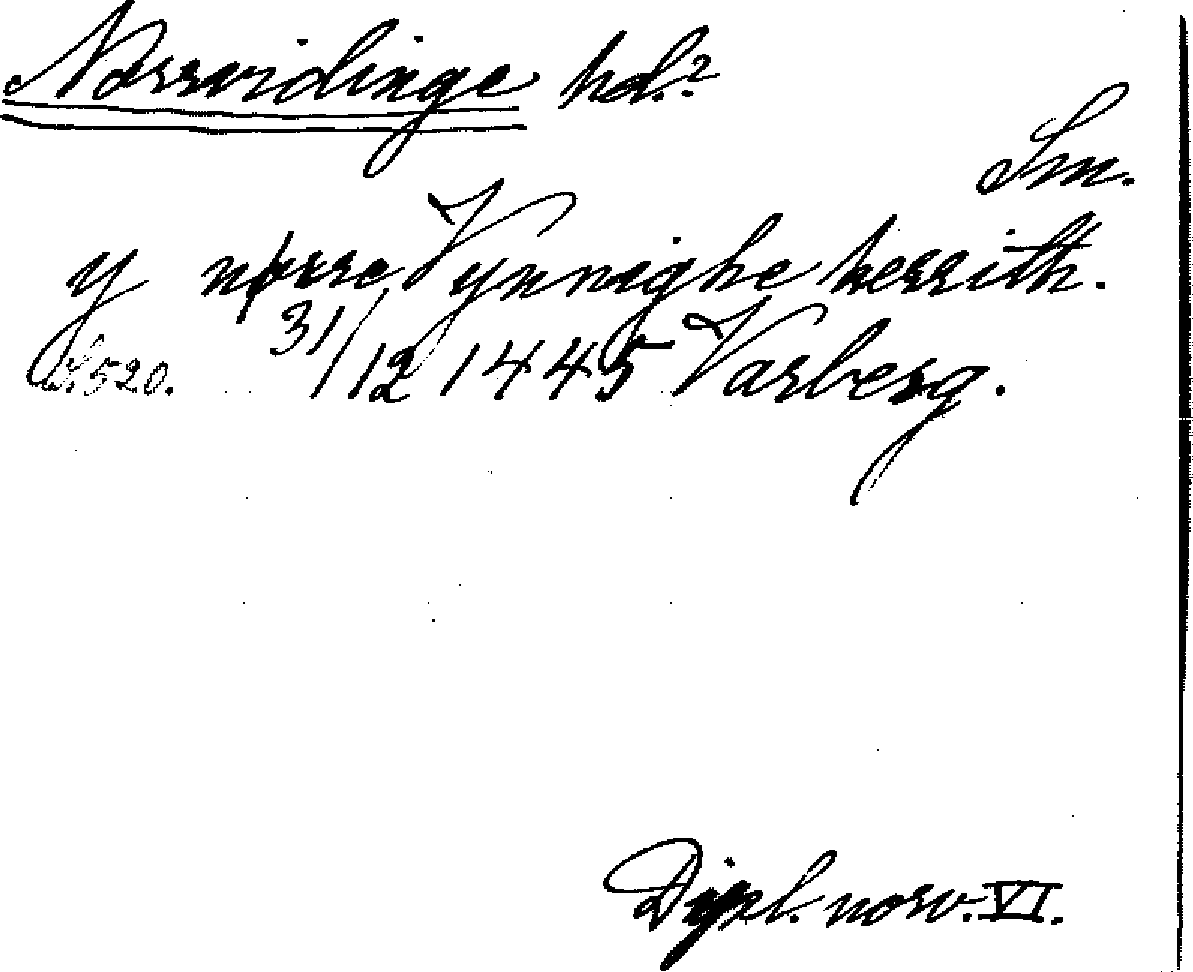 Norrvidinge hd.?
Sm.
y nørre Vynnighe herrith.
S. 520. 31/12 1445 Varberg.
Dipl. norv. VI.